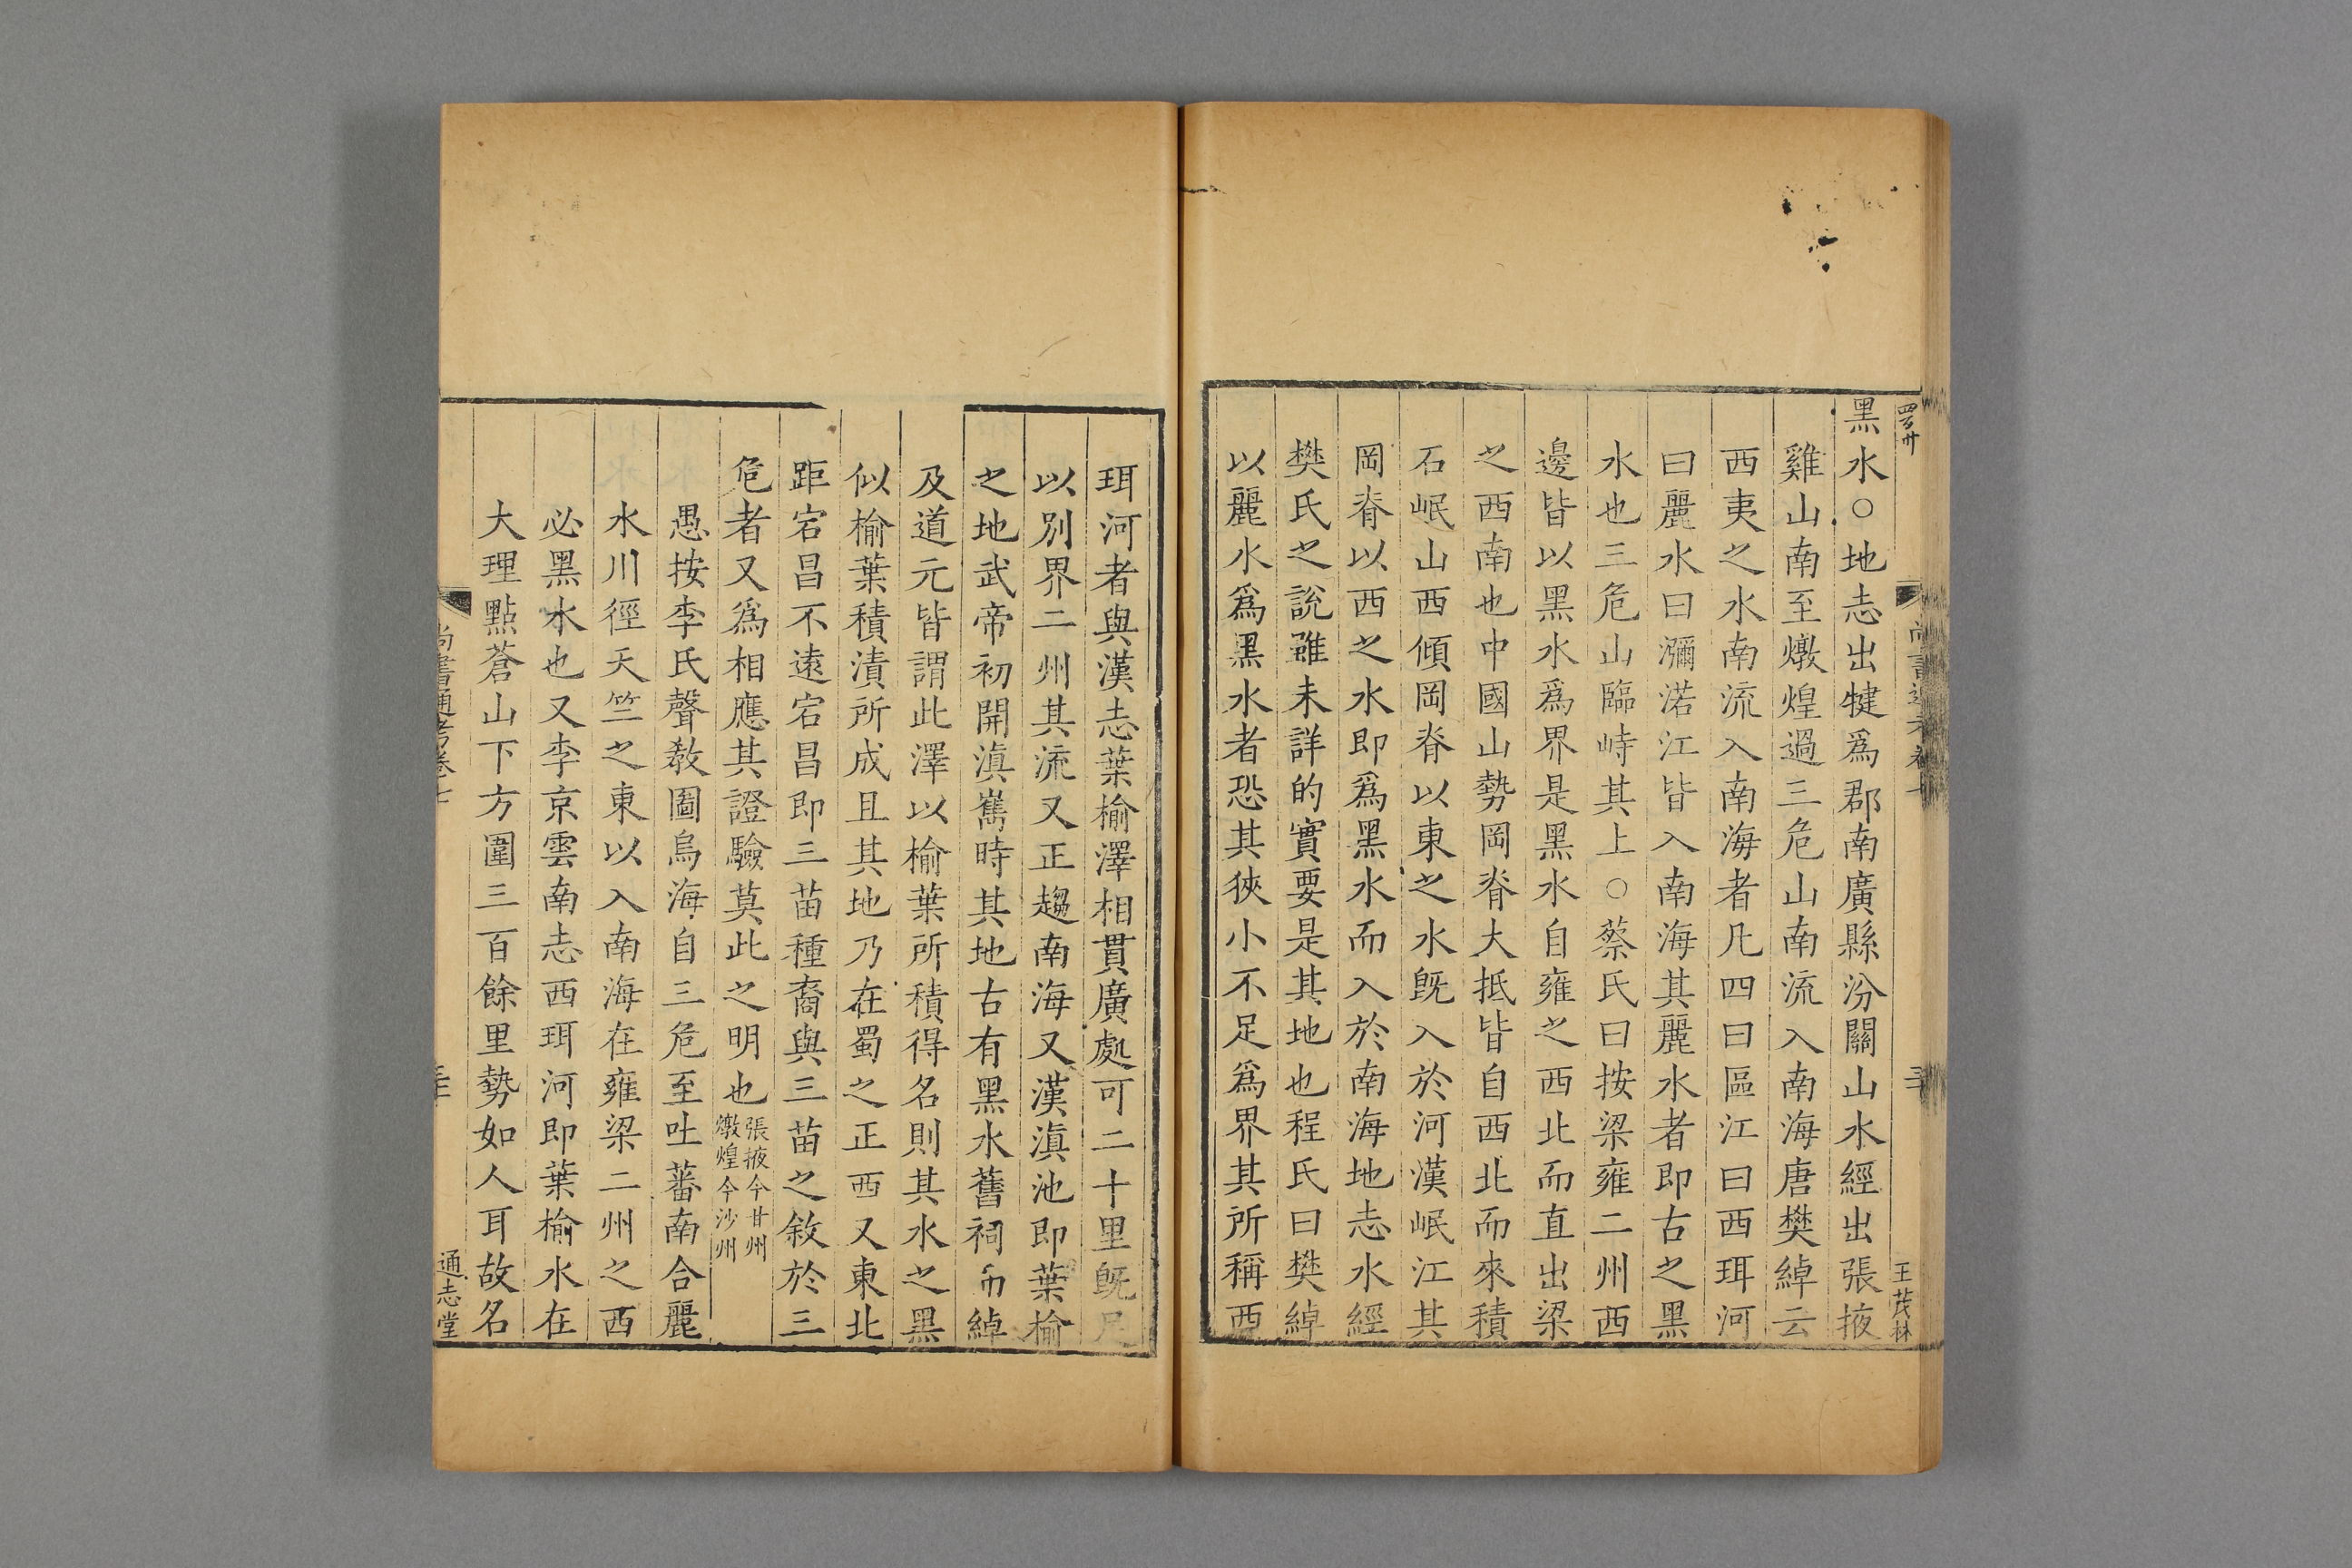 黑水○地志出犍爲郡南廣縣汾關山水經出張掖
雞山南至燉煌過三危山南流入南海唐樊綽云
西夷之水南流入南海者凡四曰區江曰西珥河
曰麗水曰瀰渃江皆入南海其麗水者即古之黑
水也三危山臨峙其上○蔡氏曰按梁雍二州西
邊皆以黑水爲界是黑水自雍之西北而直出梁
之西南也中國山勢岡脊大抵皆自西北而來積
石岷山西傾岡脊以東之水既入於河漢岷江其
岡脊以西之水即爲黑水而入於南海地志水經
樊氏之說雖未詳的實要是其地也程氏曰樊綽
以麗水爲黑水者恐其狹小不足爲界其所稱西
王茂林
珥河者與漢志葉榆澤相貫廣處可二十里既足
以別界二州其流又正趨南海又漢滇池即葉榆
之地武帝初開滇嶲時其地古有黑水舊祠而綽
及道元皆謂此澤以榆葉所積得名則其水之黑
似榆葉積漬所成且其地乃在蜀之正西又東北
距宕昌不遠宕昌即三苗種裔與三苗之敘於三
危者又爲相應其證驗莫此之明也張掖今甘州
燉煌今沙州
愚按李氏聲教圖烏海自三危至吐蕃南合麗
水川徑天竺之東以入南海在雍梁二州之西
必黑水也又李京雲南志西珥河即葉榆水在
大理點蒼山下方圍三百餘里勢如人耳故名
尚書通考卷七
通志堂